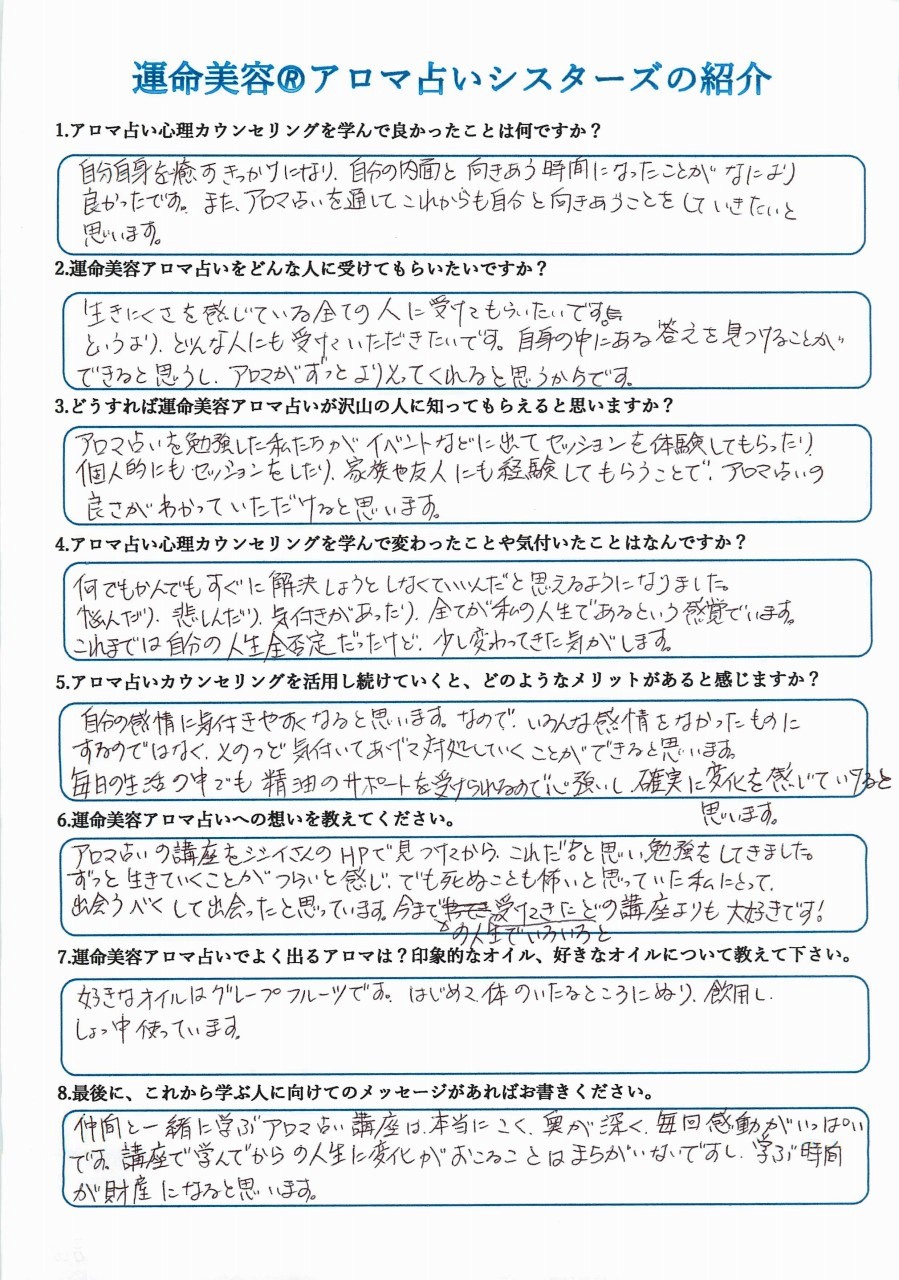 運命美容®アロマ占いシスターズの紹介
1.アロマ占い心理カウンセリングを学んで良かったことは何ですか？
自分自身を癒すきっかけになり、自分の内面と向きあう時間になったことがなにより
良かったです。また、アロマ占いを通してこれからも自分と向きあうことをしていきたいと
思います。
2.運命美容アロマ占いをどんな人に受けてもらいたいですか？
生きにくさを感じている全ての人に受けてもらいたいです。
というより、どんな人にも受けていただきたいです。自身の中にある答えを見つけることが
できると思うし、アロマがずっとよりそってくれると思うからです。
3.どうすれば運命美容アロマ占いが沢山の人に知ってもらえると思いますか？
アロマ占いを勉強した私たちがイベントなどに出てセッションを体験してもらったり
個人的にもセッションをしたり、家族や友人にも経験してもらうことで、アロマ占いの
良さがわかっていただけると思います。
4.アロマ占い心理カウンセリングを学んで変わったことや気付いたことはなんですか？
何でもかんでもすぐに解決しようとしなくていいんだと思えるようになりました。
悩んだり、悲しんだり、気付きがあったり、全てが私の人生であるという感覚でいます。
これまでは自分の人生全否定だったけど、少し変わってきた気がします。
5.アロマ占いカウンセリングを活用し続けていくと、どのようなメリットがあると感じますか？
自分の感情に気付きやすくなると思います。なので、いろんな感情をなかったものに
するのではなく、そのつど気付いてあげて対処していくことができると思います。
毎日の生活の中でも精油のサポートを受けられるので心強いし、確実に変化を感じていけると
思います。
6.運命美容アロマ占いへの想いを教えてください。
アロマ占いの講座をジジイさんのHPで見つけてから、これだ!!と思い勉強をしてきました。
ずっと生きていくことがつらいと感じ、でも死ぬことも怖いと思っていた私にとって、
出会うべくして出会ったと思っています。今まで受けてきたどの講座よりも大好きです！
の人生でいろいろと
7.運命美容アロマ占いでよく出るアロマは？印象的なオイル、好きなオイルについて教えて下さい。
好きなオイルはグレープフルーツです。はじめて体のいたるところにぬり、飲用し、
しょっ中使っています。
8.最後に、これから学ぶ人に向けてのメッセージがあればお書きください。
仲間と一緒に学ぶアロマ占い講座は、本当にこく、奥が深く、毎回感動がいっぱい
です。講座で学んでからの人生に変化がおこることはまちがいないですし、学ぶ時間
が財産になると思います。